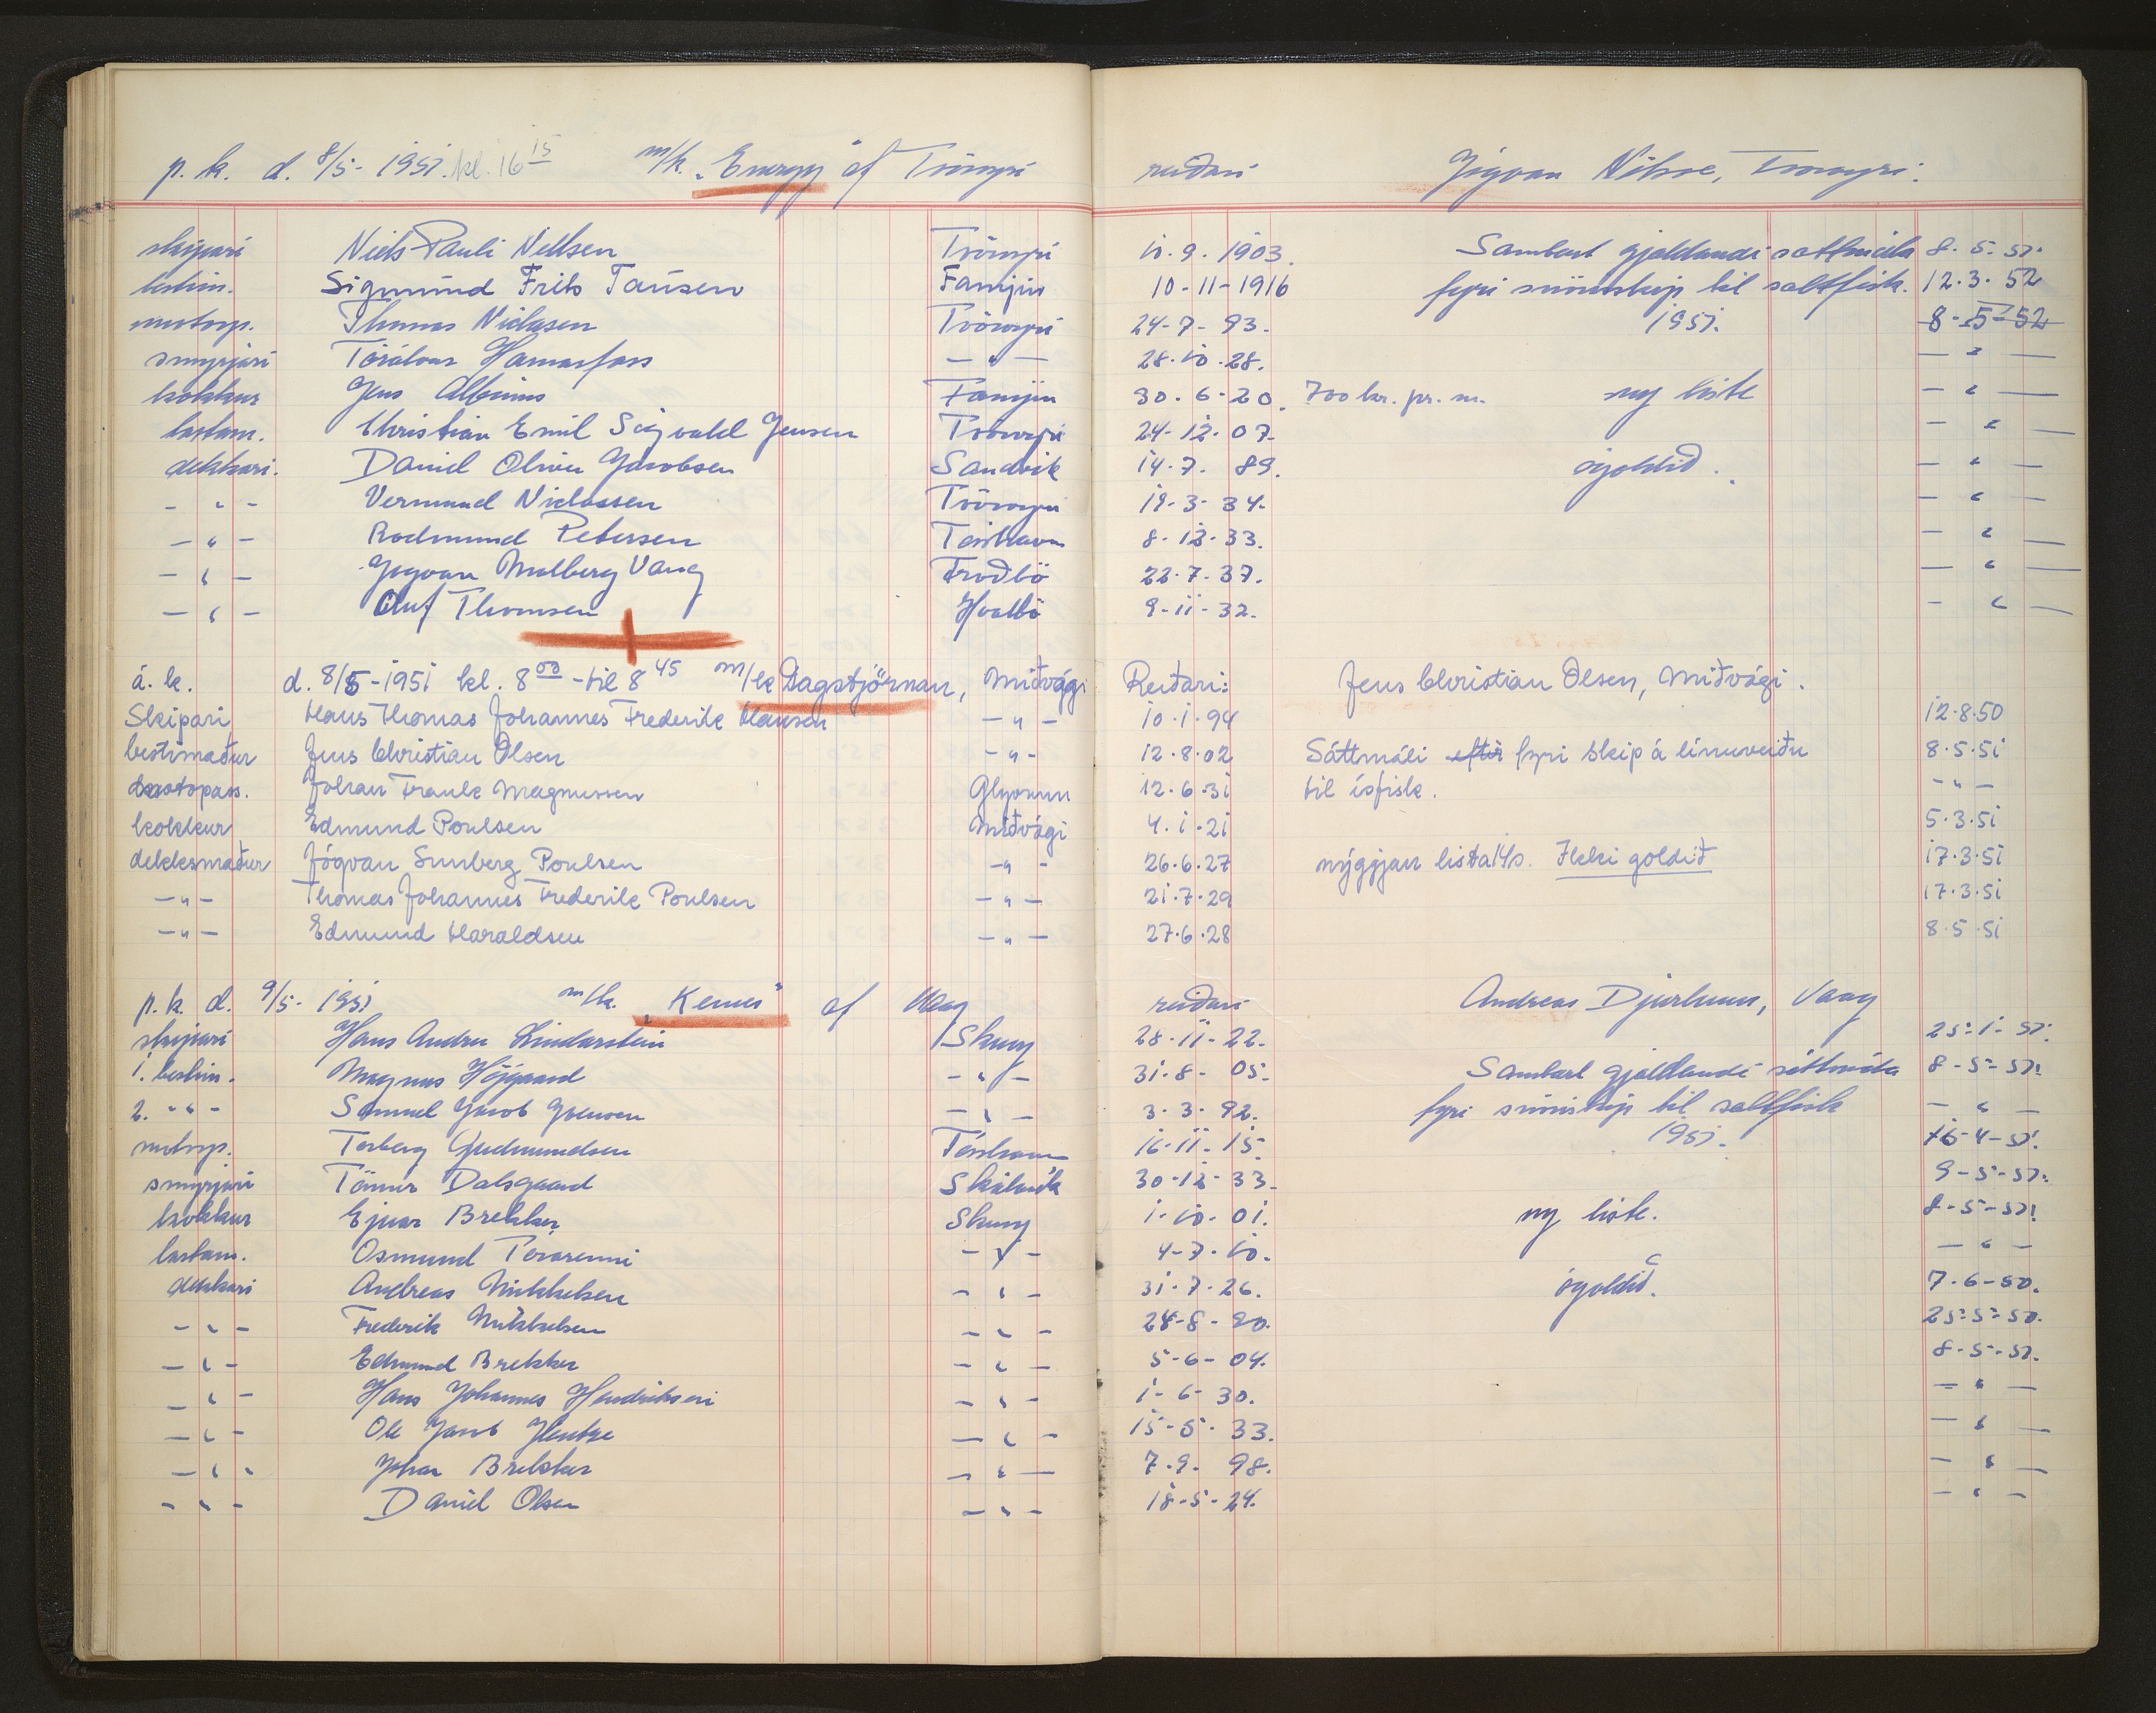 p. k. d. 8/5- 1951. kl. 16 15 m/k. „Energy" af Tvöroyri reiðari Jógvan Nielsen, Tvöroyri.
skipari Niels Pauli Nielsen Tvöroyri 10. 9. 1903. Sambart gjaldandi sáttmála 8. 5. 51.
bestim. Sigmund Frits Tausen Famjin 10-11-1916 fyri sluppskip til saltfisk. 12. 3. 52
motorp. Thomas Niclasen Tvöroyri 24-7- 93. 1951. 8-5-52
smyrjari Tórálvur Hamarfoss — " — 28. 10. 28. — " —
kokkur Jens Albinus Famjin 30. 6-20. 700 kr. pr. m. ny liste — " —
lastam. Christian Emil Sigvald Jensen Tvöroyri 24-12-07. — " —
dekkari. Daniel Oliver Jacobsen Sandvik 14. 7. 89. ógoldið. — " —
- " - Vermund Niclassen Tvöroyri 19-3-34. — " —
— " — Rodmund Petersen Tórshavn 8-12-33. — " —
— " — Jógvan Malberg Vang Froðbö 22. 7. 37. — " —
— " — Oluf Thomsen Hvalbö 9-11-32. — " —
á. k. d. 8/5-1951 kl. 8 00 - til 8 45 m/k Dagstjörnan, Miðvági Reiðari: Jens Christian Olsen, Miðvági.
Skipari Hans Thomas Johannes Frederik Hansen — " — 10. 1. 94 12. 8. 50
bestimaður Jens Christian Olsen — " — 12. 8. 02 Sáttmáli eftir fyri skip á línuveiðu 8. 5. 51
motorpass. Johan Frank Magnussen Glyvrum 12. 6. 31 til ísfisk. — " —
kokkur Edmund Poulsen Miðvági 4. 1. 21 5. 3. 51
dekksmaður Jógvan Sunberg Poulsen — " — 26. 6. 27 nýggjan lista Ikki goldið 17. 3. 51
— " — Thomas Johannes Frederik Poulsen — " — 21. 7. 29 17. 3. 51
— " — Edmund Haraldsen — " — 27. 6. 28 8. 5 51
p. k. d. 9/5- 1951 m/k. „Kemes" af Vaag reiðari Andreas Djurhuus, Vaag
skipari Hans Andrew Lindarstein Skuvoy 28-11-22. 25-1-51.
1. bestim. Magnus Höjgaard — " — 31-8-05. Sambart gjaldandi sáttmála 8-5-51.
2. - " - Samuel Jacob Joensen — " — 3-3-92. fyri sluppskip til saltfisk — " —
motorp. Torberg Gudmundsen Tórshavn 16-11-15. 1951. 16-4-51.
smyrjari Tummas Dalsgaard Skálavík 30-12-33. 9-5-51.
kokkur Ejvar Brekker Skuvoy 1-10-01. ny liste. 8-5-51.
lastam. Osmund Tórarenni — " — 4-7-10. — " —
dekkari Andreas Mikkelsen — " — 31-7-26. ógoldið. 7-6-50.
- " - Frederik Mikkelsen — " — 24-8-90. 25-5-50.
— " — Edmund Brekker — " — 5-6-04. 8-5-51.
— " — Hans Johannes Hendriksen — " — 1-6-30. — " —
— " — Ole Jacob Jfentze — " — 15-5-33. — " —
— " — Johan Brekker — " — 7-9-98. — " —
- " - Daniel Olsen — " — 18-5-24. — " —